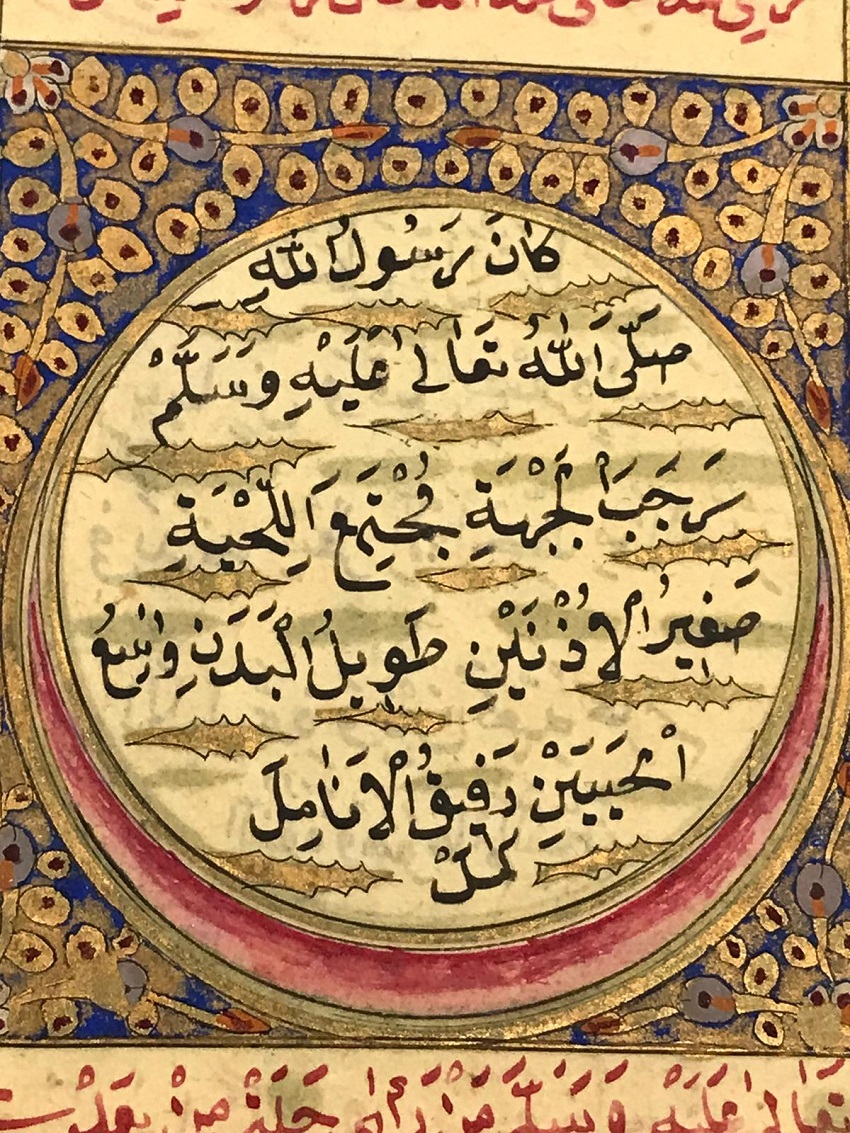 كَانَ رَسُولُ اللّٰهِ
صَلَّى اللّٰهُ تَعَالٰى عَلَيْهِ وَسَلَّمْ
رَحْبَ الْجَبْهَةِ مُجْتَمَعَ اللِّحْيَةِ
صَغِيرُ الْاُذْنَيْنِ طَوِيلُ الْبَدَنِ وَاسِعُ
الْجَبِينَيْنِ دَقِيقُ الْاَنَامِلَ
تَعَالٰى عَلَيْهِ وَسَلَّمَ مَنْ رَاٰى حِلْيَةً مِنْ بَعْدِى